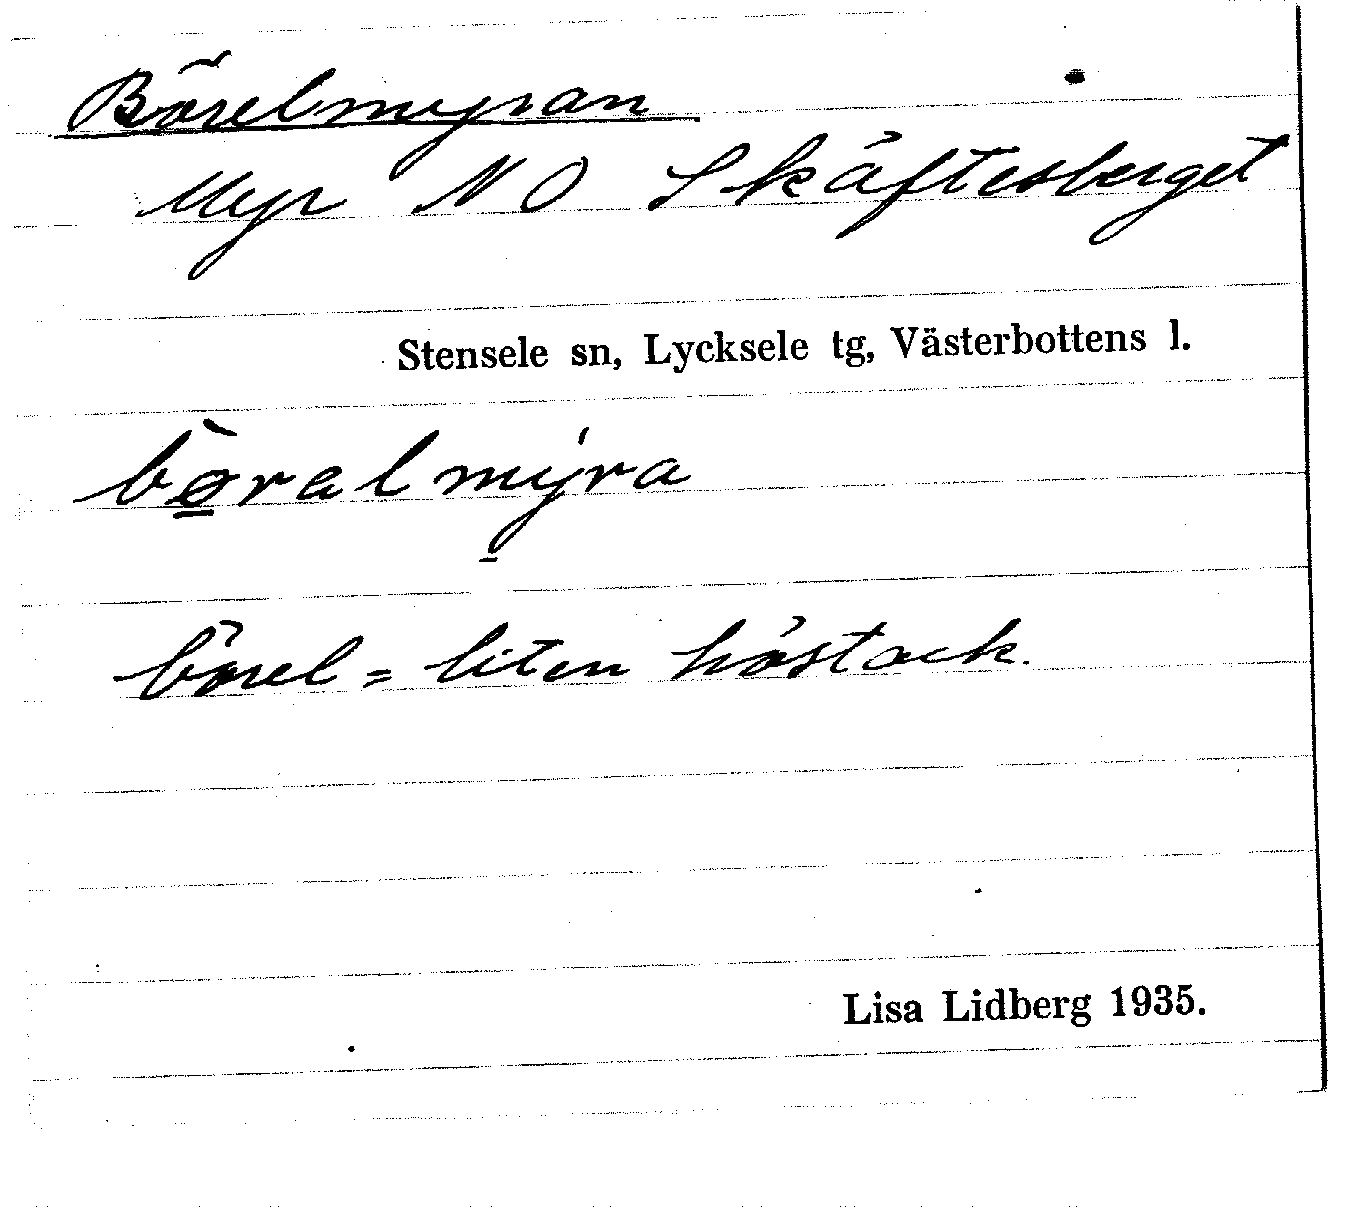 Börelmyran
Myr NO Skäftesberget
Stensele sn, Lycksele tg, Västerbottens l.
bø̱̀ralmýra
börel = liten höstack.
Lisa Lidberg 1935.